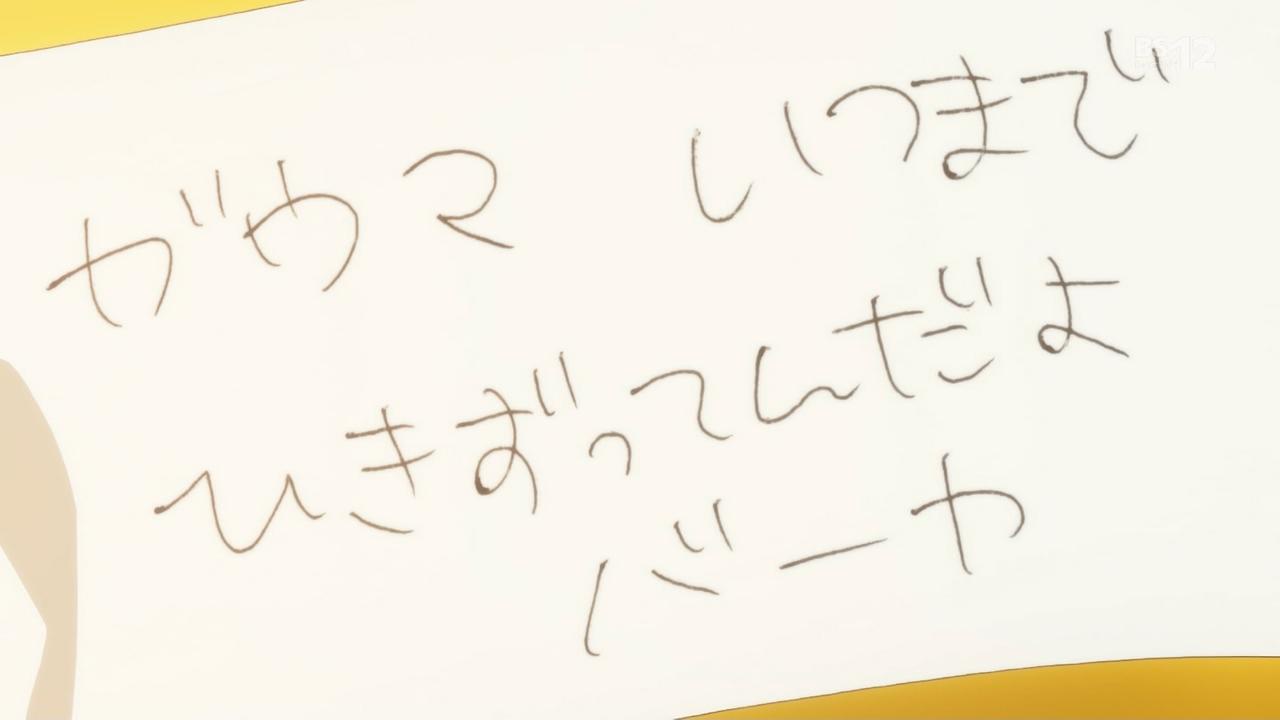 ガウマ いつまで
ひきずってんだよ
バーヤ
BS12